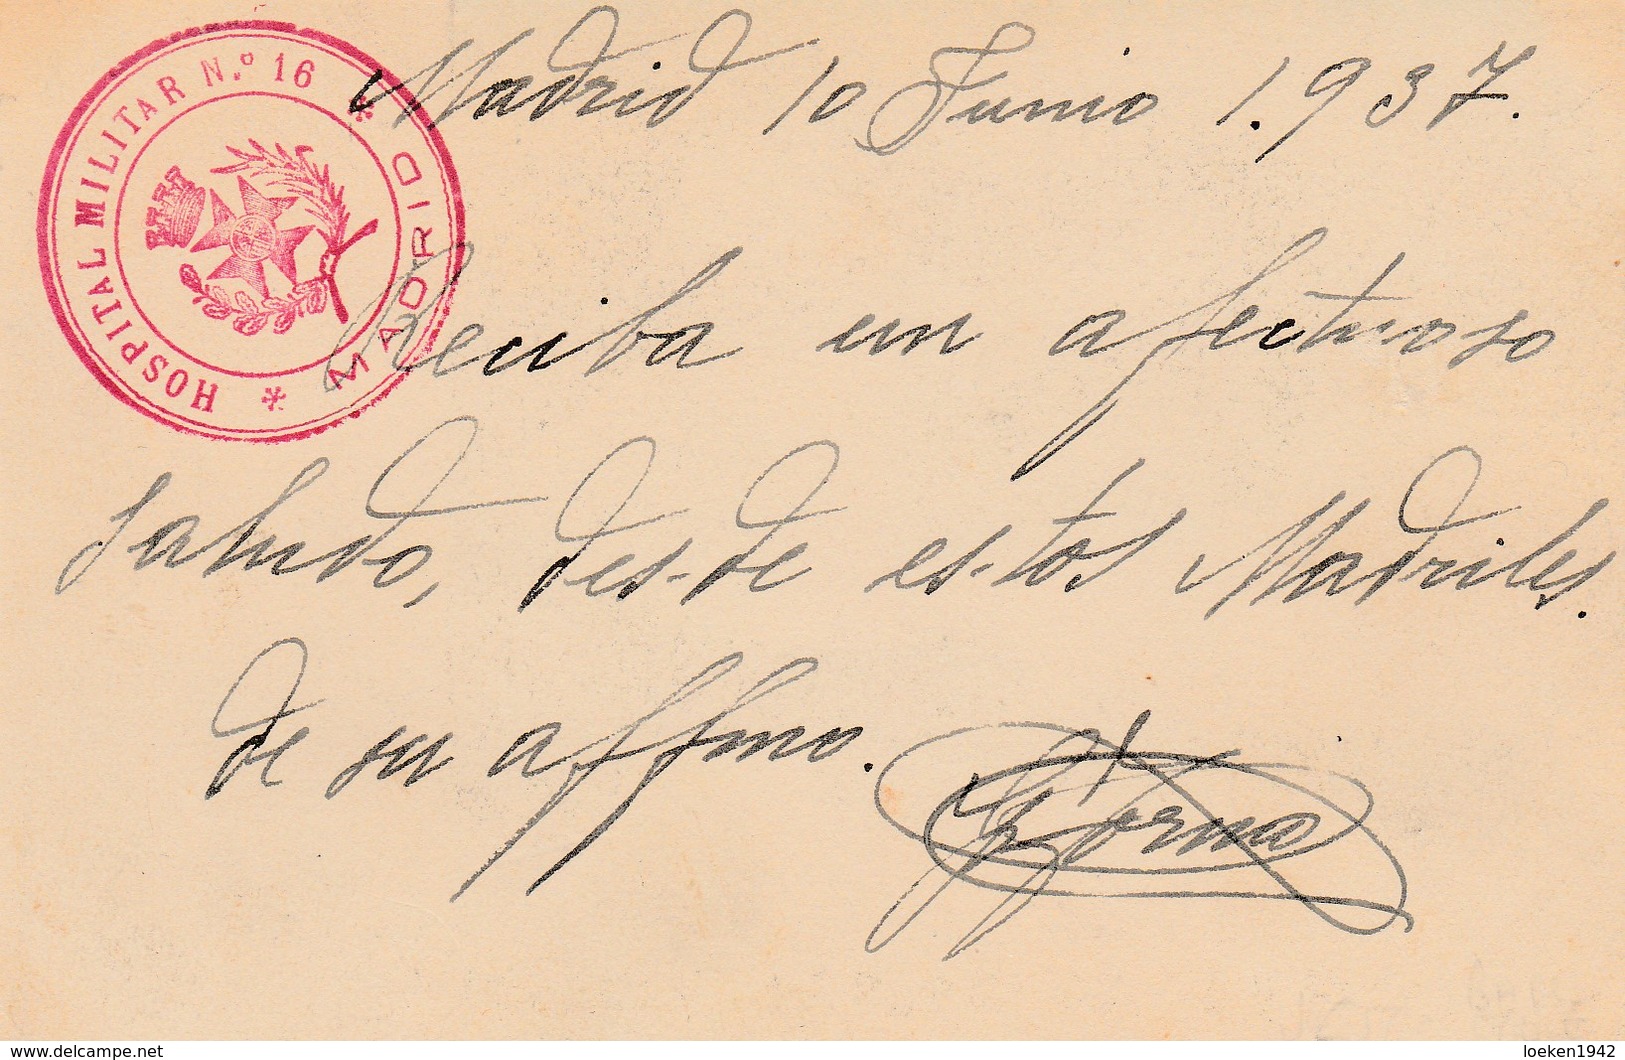 HOSPITAL MILITAR N.º 16
* MADRID *
Madrid 10 Junio 1.937.
Reciba un afectuoso
saludo, des-de es-tos Madriles.
de su affmo.
delcampe.net
loeken1942